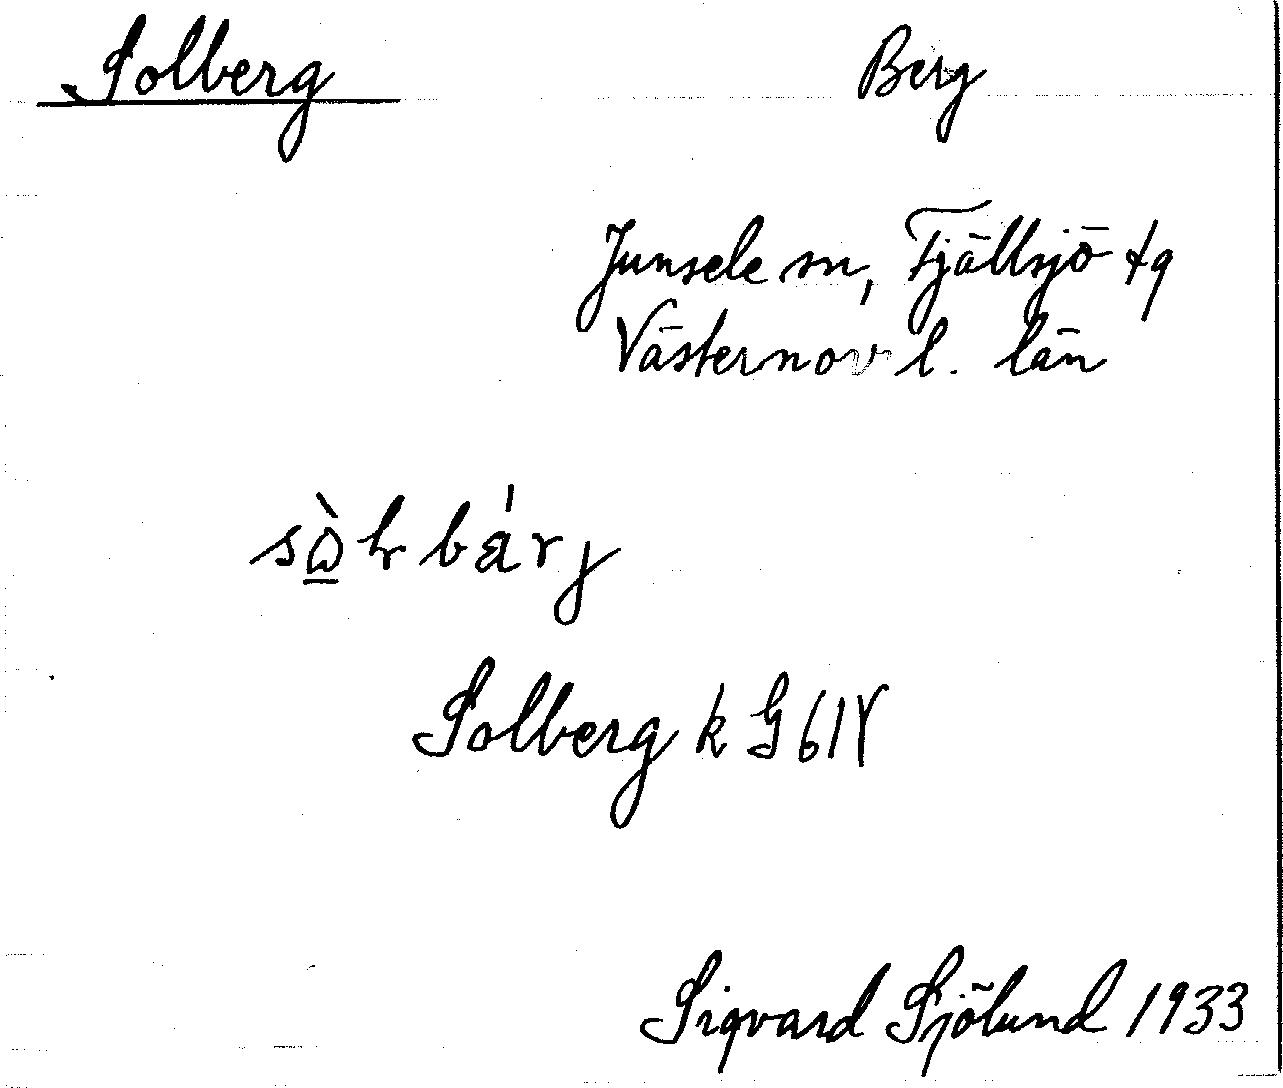 Solberg Berg
Junsele sn, Fjällsjö tg
Västernorrl. län
Solberg k G 61 V
Sigvard Sjölund 1933